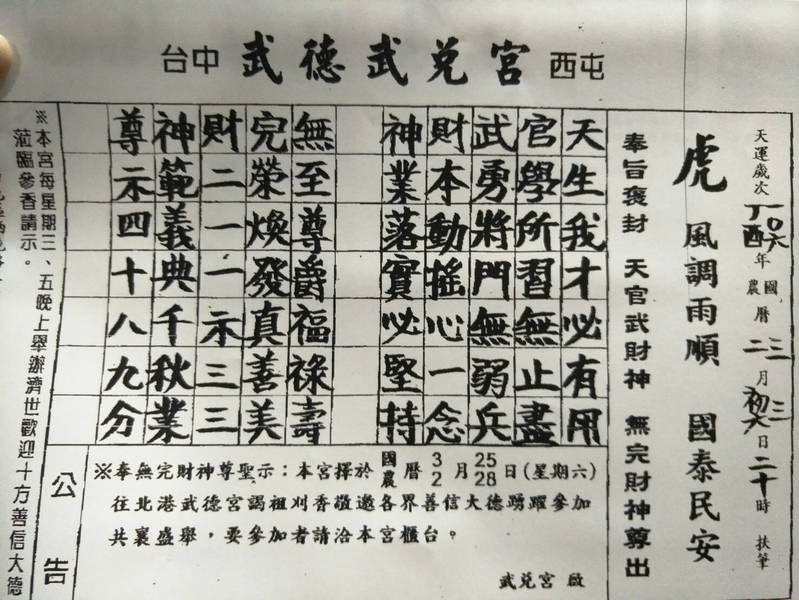 台中 武德武兌宮 西屯
天運歲次丁酉〇六年 國農曆三二月三初六日二十時 扶筆
虎 風調雨順 國泰民安
奉旨褒封 天官武財神 無完財神尊出
天生我才必有用
官學所習無止盡
武勇將門無弱兵
財本動搖心一念
神業落實必堅持
無至尊爵福祿壽
完榮煥發真善美
財二一一示三三
神範義典千秋業
尊示四十八九分
公告
※奉無完財神尊聖示：本宮擇於國農曆3 2月25 28日(星期六)
往北港武德宮謁祖刈香敬邀各界善信大德踴躍參加
共襄盛舉，要參加者請洽本宮櫃台。
武兌宮 啟
※本宮每星期三、五晚上舉辦濟世歡迎十方善信大德
蒞臨參香請示。